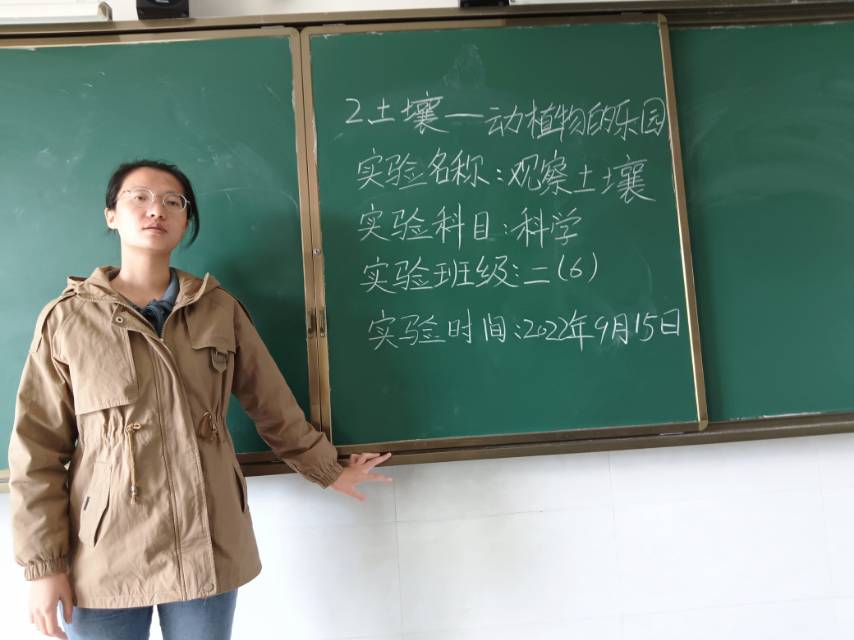 2土壤—动植物的乐园
实验名称:观察土壤
实验科目:科学
实验班级:二(6)
实验时间:2022年9月15日